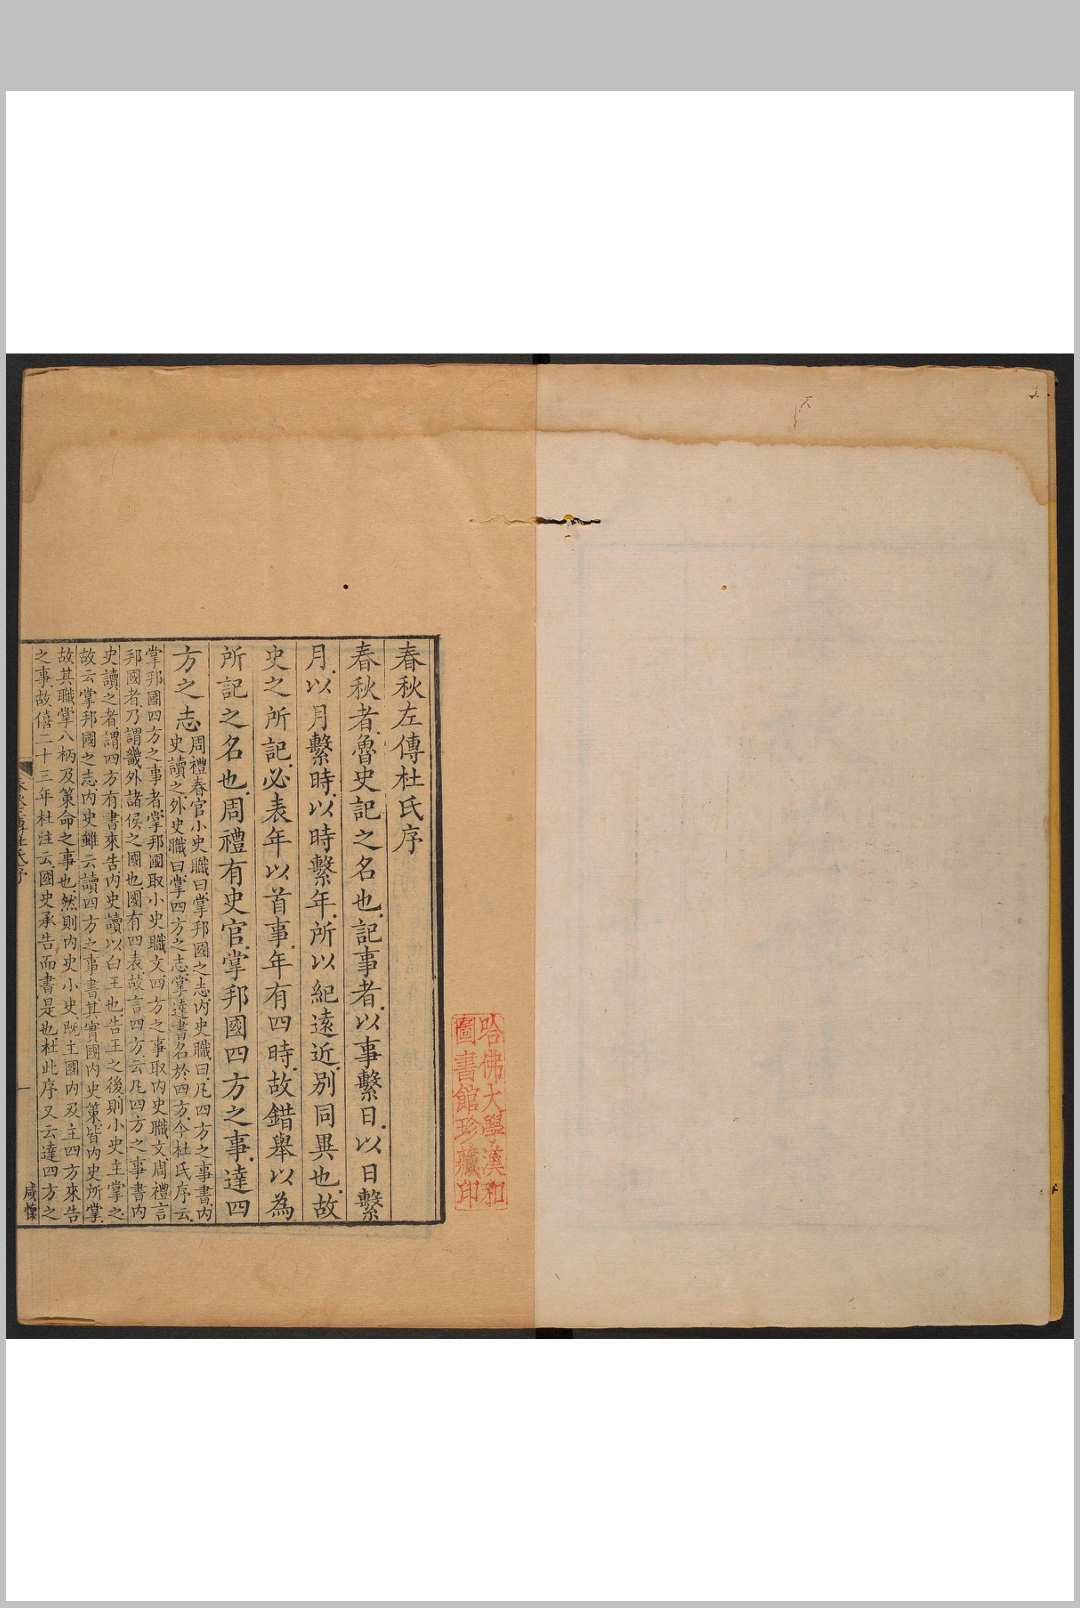 春秋左傳杜氏序
春秋者魯史記之名也記事者以事繫日以日繫
月以月繫時以時繫年所以紀遠近別同異也故
史之所記必表年以首事年有四時故錯舉以為
所記之名也周禮有史官掌邦國四方之事達四
方之志
周禮春官小史職曰掌邦國之志內史職曰凡四方之事書內
史讀之外史職曰掌四方之志掌達書名於四方今杜氏序云
掌邦國四方之事者掌邦國取小史職文四方之事取內史職文周禮言
邦國者乃謂畿外諸侯之國也國有四表故言四方云凡四方之事書內
史讀之者謂四方有書來告內史讀以白王也告王之後則小史主掌之
故云掌邦國之志內史雖云讀四方之事書其實國內史策皆內史所掌
故其職掌八柄及策命之事也然則內史小史既主國內及主四方來告
之事故僖二十三年杜注云國史承告而書是也杜此序又云達四方之
哈佛大學漢和
圖書館珍藏印